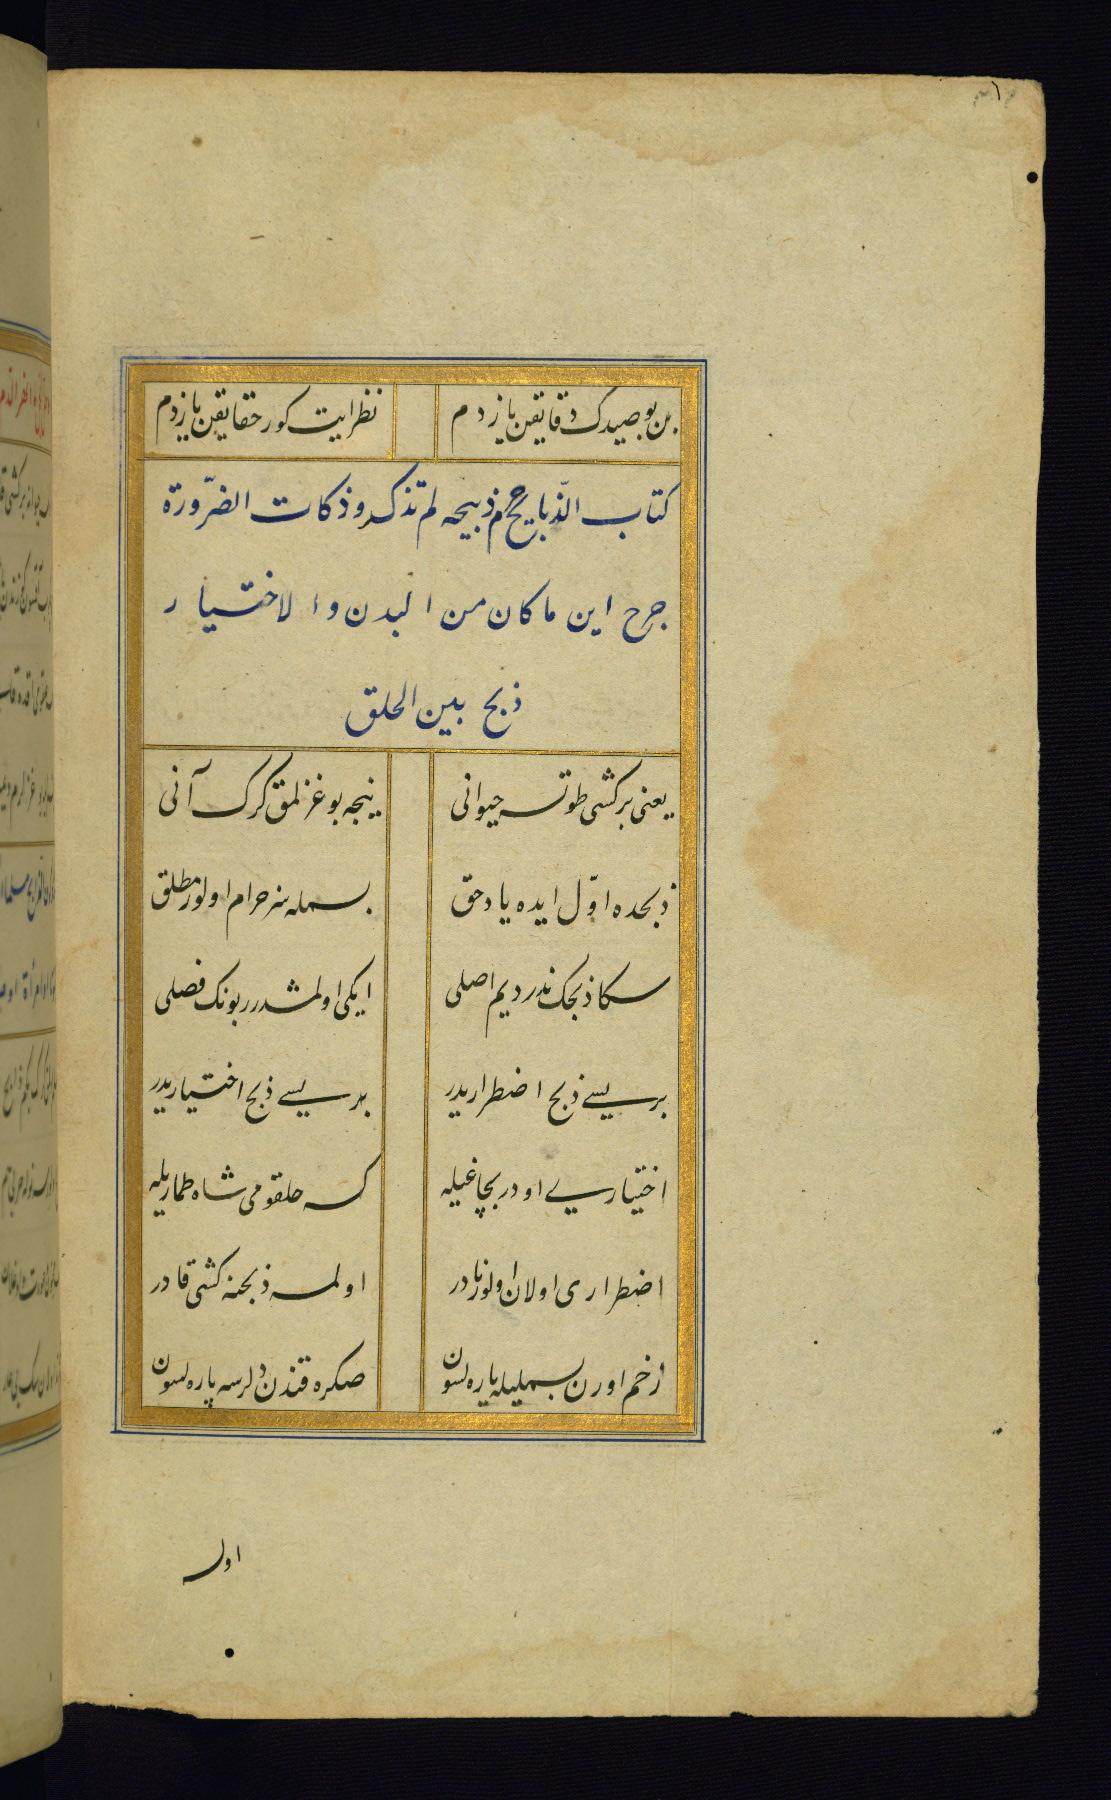 بن بو صیدك دقایقن یازدم نظر ایت كور حقایقن یازدم
كتاب الذّبایح حرم ذبیحه لم تذك و ذكات الضرّورة
جرح این ما كان من البدن و الاختیار
ذبح بین الحلق
یعنی بر كشی طوتسه حیوانی نیجه بوغزلمق كرك آنی
ذبحده اوّل ایده یاد حق بسمله سز حرام اولور مطلق
سكا ذبحك ندر دیم اصلی ایكی اولمشدرر بونك فصلی
بریسی ذبح اضطراریدر بریسی ذبح اختیاریدر
اختیاریسی اودر بچاغیله كسه حلقومی شاه طماریله
اضطراری اولان اولور نادر اولمسه ذبحنه كشی قادر
زخم اورن بسملیله یاره لسون صكره قنددن دلرسه پاره لسون
اوله